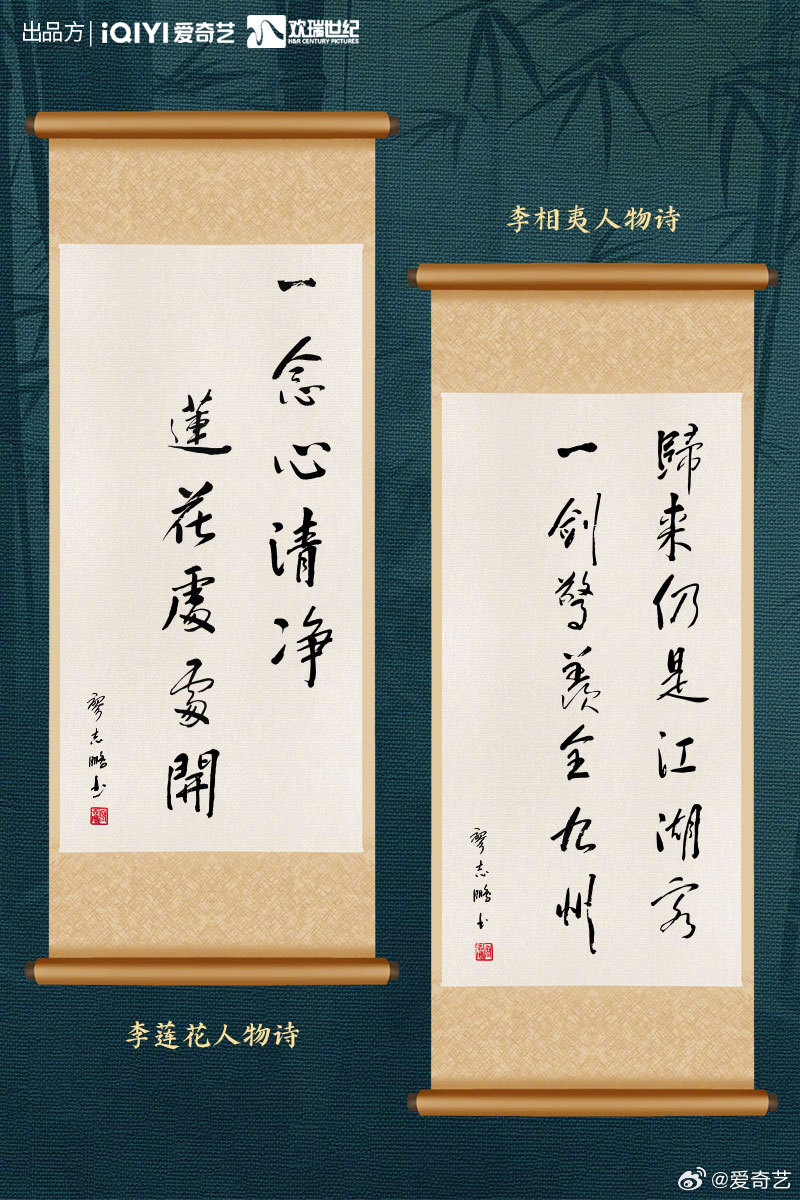 出品方 | iQIYI 爱奇艺 欢瑞世纪
H&R CENTURY PICTURES
一念心清净
蓮花處處開
廖志鵬书
李莲花人物诗
李相夷人物诗
歸来仍是江湖客
一剑驚羨全九州
廖志鵬书
@爱奇艺